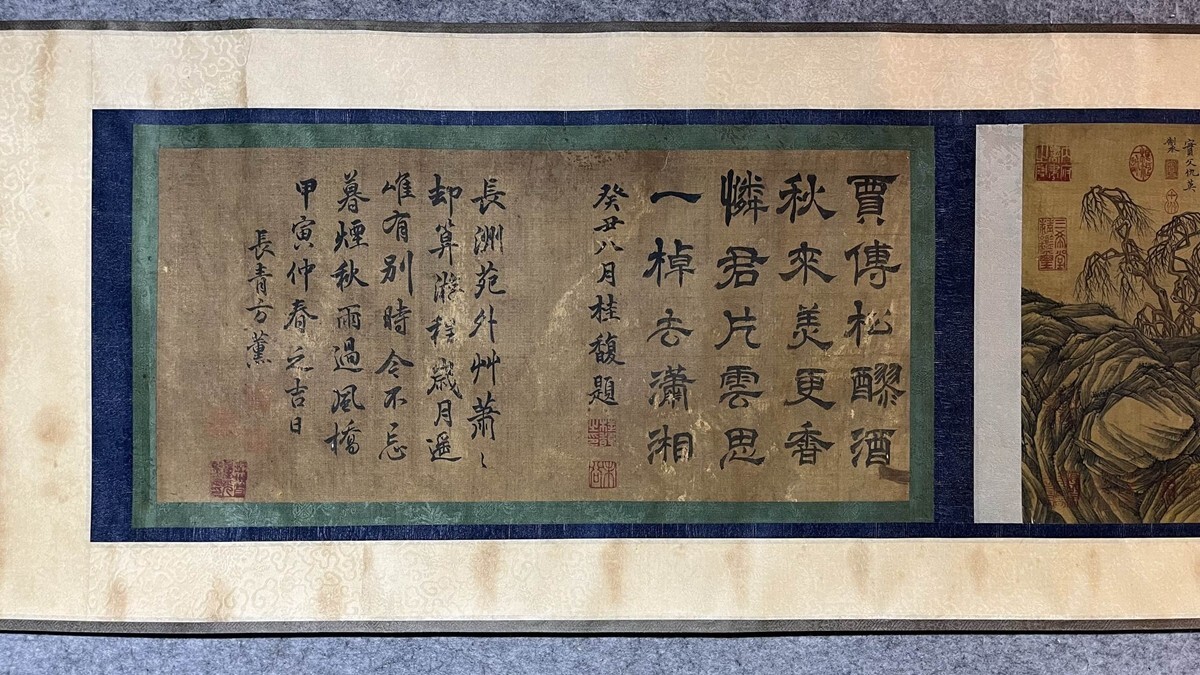 實父仇英
製
三希堂
精鑑璽
賈傅松醪酒
秋來美更香
憐君片雲思
一棹去瀟湘
癸丑八月桂馥題
長洲苑外艸蕭〻
却算游程歲月遥
唯有别時今不忘
暮煙秋雨過風橋
甲寅仲春之吉日
長青方薰